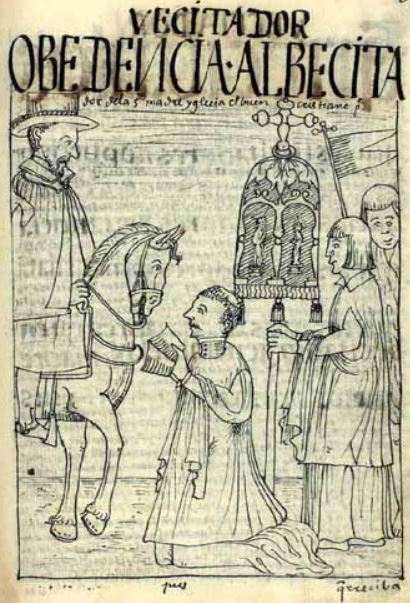 VECITADOR
OBEDENCIA·ALBECITA
dor dela s madre yglecia el buen cristiano p
pus
q̃ reciba